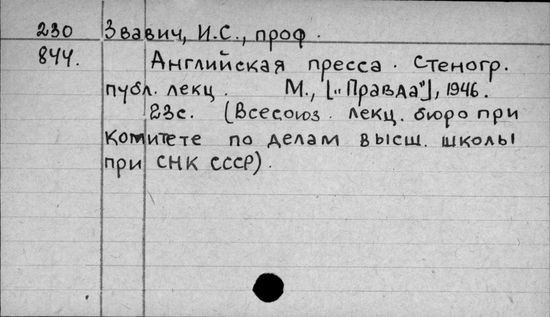 230 Звавич, И.С., проф.
844. Английская пресса. Стеногр.
публ. лекц. М., ["Правда"], 1946.
23с. (Всесоюз. лекц. бюро при
Комитете по делам высш. школы
при СНК СССР).